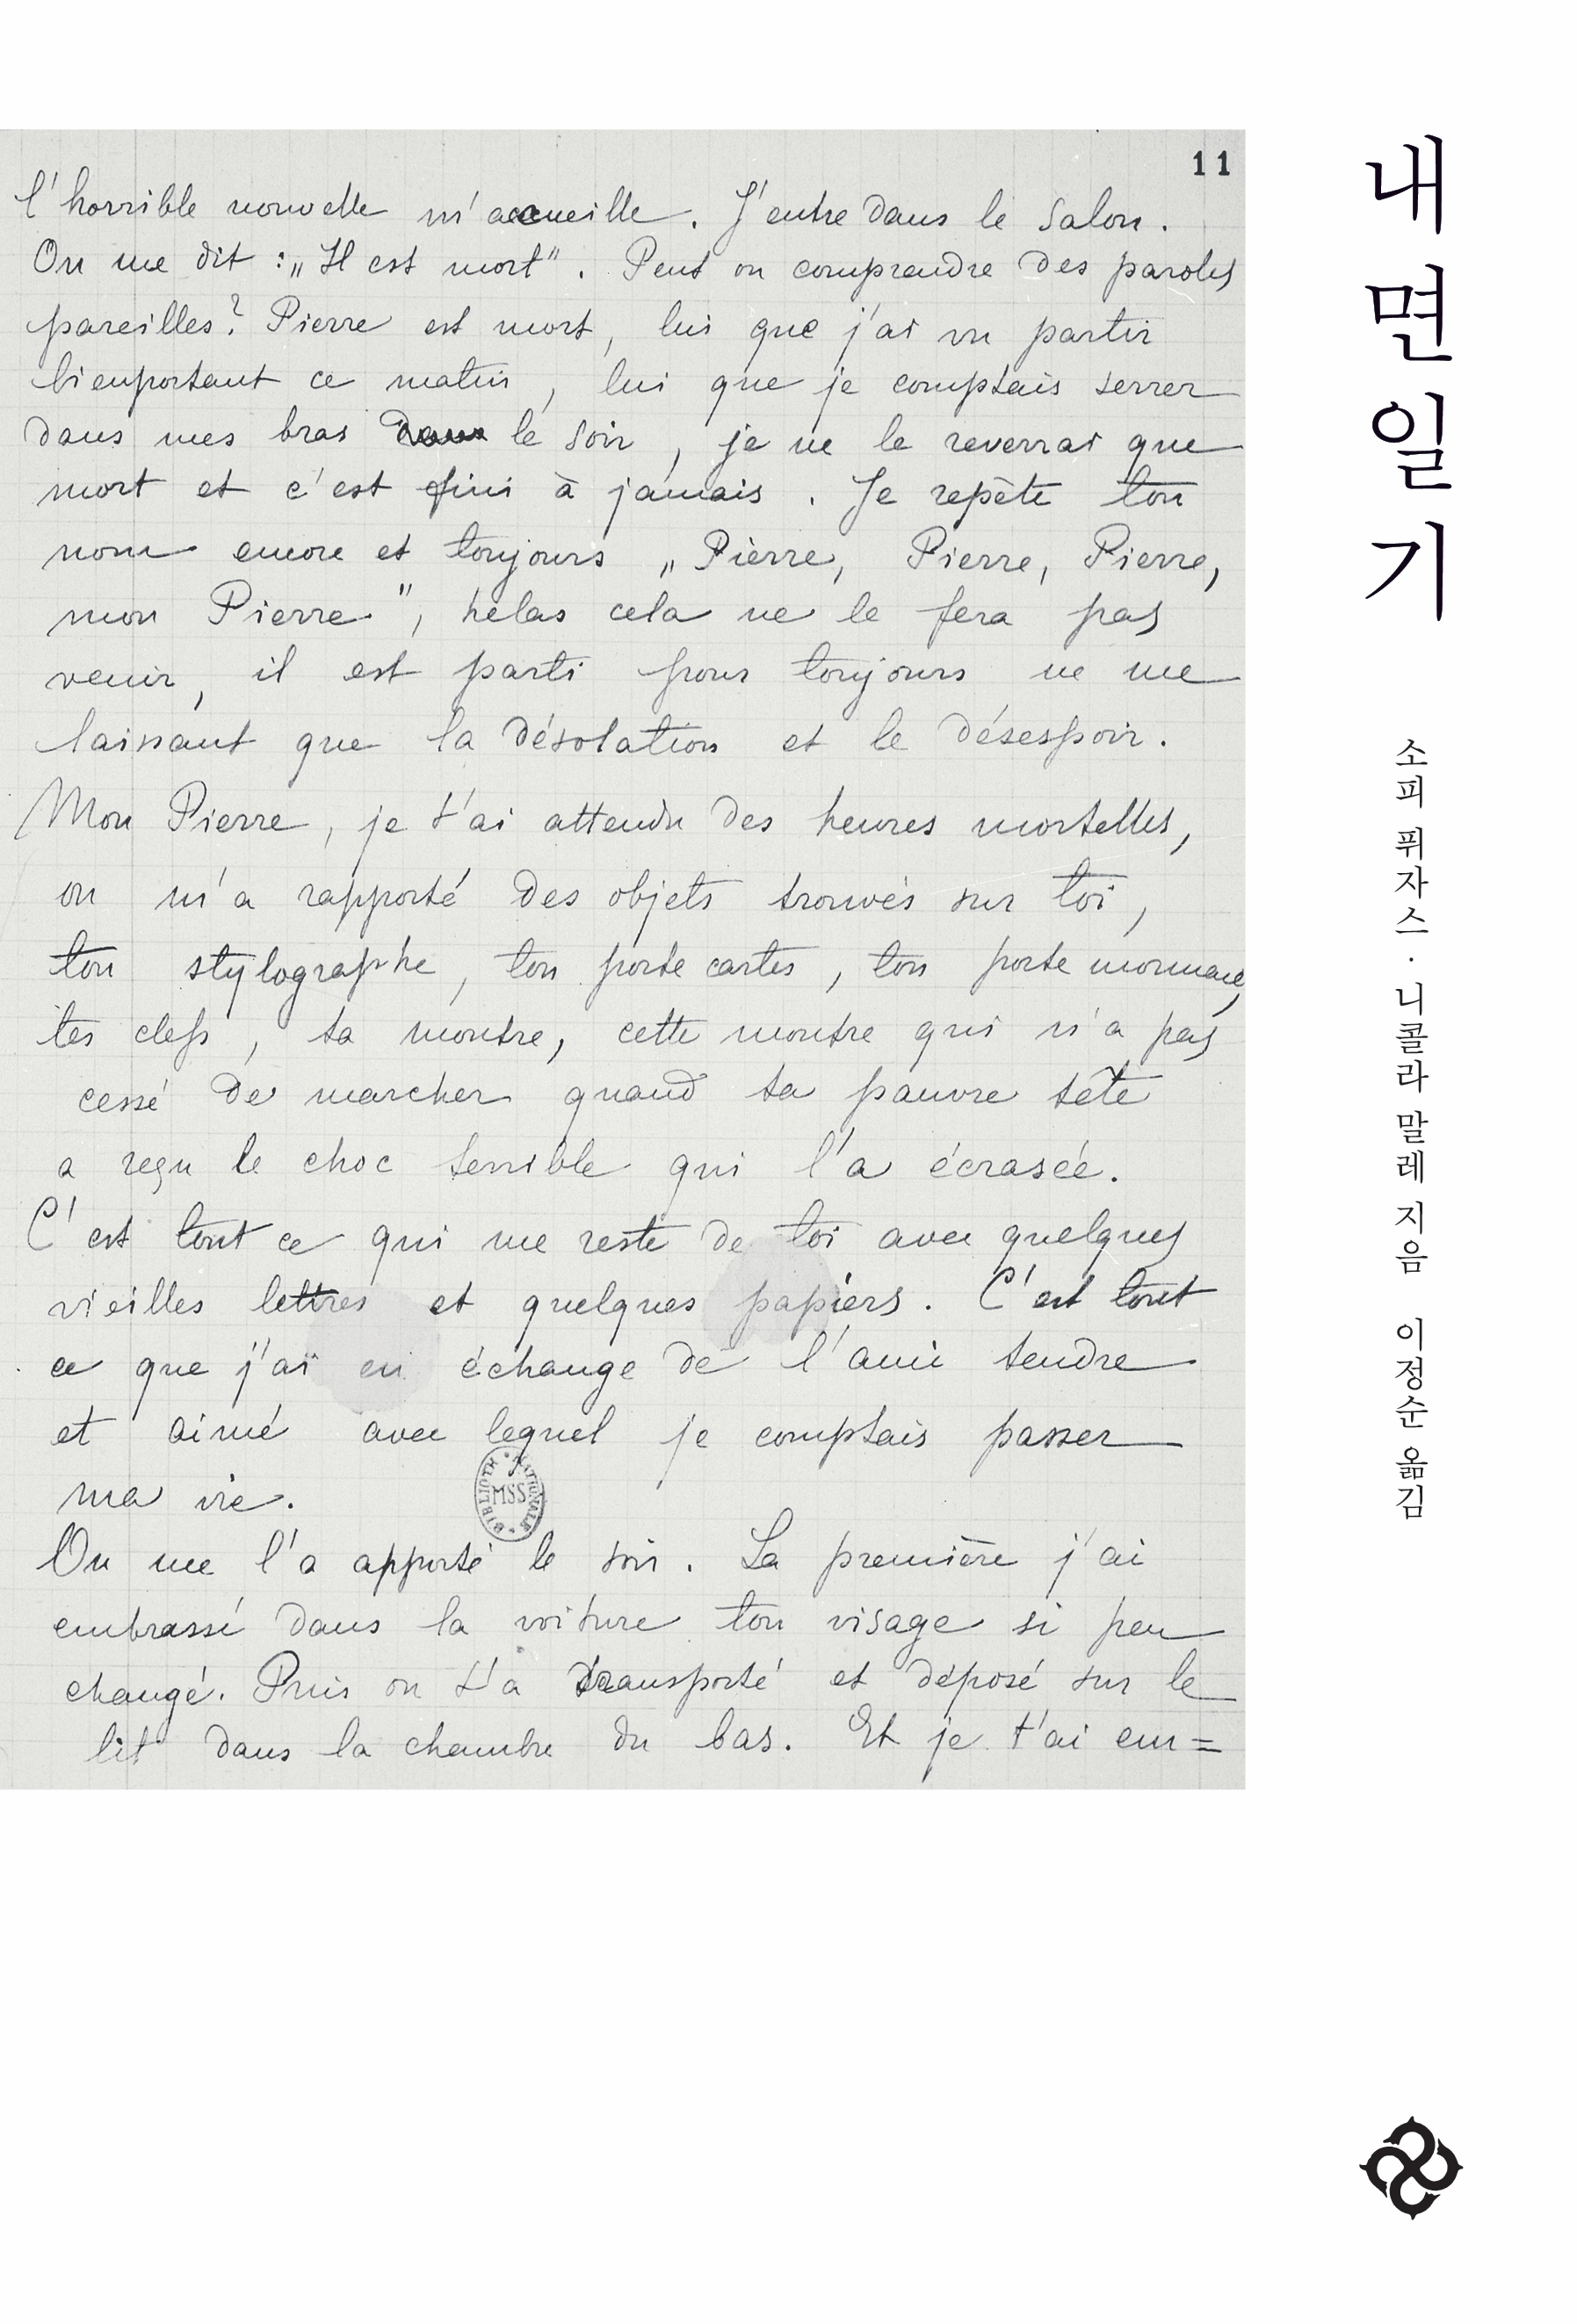 11
l'horrible nouvelle m'accueille. J'entre dans le salon.
On me dit : „Il est mort". Peut on comprendre des paroles
pareilles? Pierre est mort, lui que j'ai vu partir
bienportant ce matin, lui que je comptais serrer
dans mes bras le soir, je ne le reverrai que
mort et c'est fini à jamais. Je repète ton
nom encore et toujours „Pierre, Pierre, Pierre,
mon Pierre", helas cela ne le fera pas
venir, il est parti pour toujours ne me
laissant que la désolation et le désespoir.
Mon Pierre, je t'ai attendu des heures mortelles,
on m'a rapporté des objets trouvés sur toi,
ton stylographe, ton porte cartes, ton porte monnaie,
tes clefs, ta montre, cette montre qui n'a pas
cessé de marcher quand ta pauvre tête
a reçu le choc terrible qui l'a écrasée.
C'est tout ce qui me reste de toi avec quelques
vieilles lettres et quelques papiers. C'est tout
ce que j'ai en échange de l'ami tendre
et aimé avec lequel je comptais passer
ma vie.
BIBLIOTH. NATIONALE MSS
On me l'a apporté le soir. La première j'ai
embrassé dans la voiture ton visage si peu
changé. Puis on t'a transporté et déposé sur le
lit dans la chambre du bas. Et je t'ai em=
내면일기
소피 퓌자스·니콜라 말레 지음 이정순 옮김